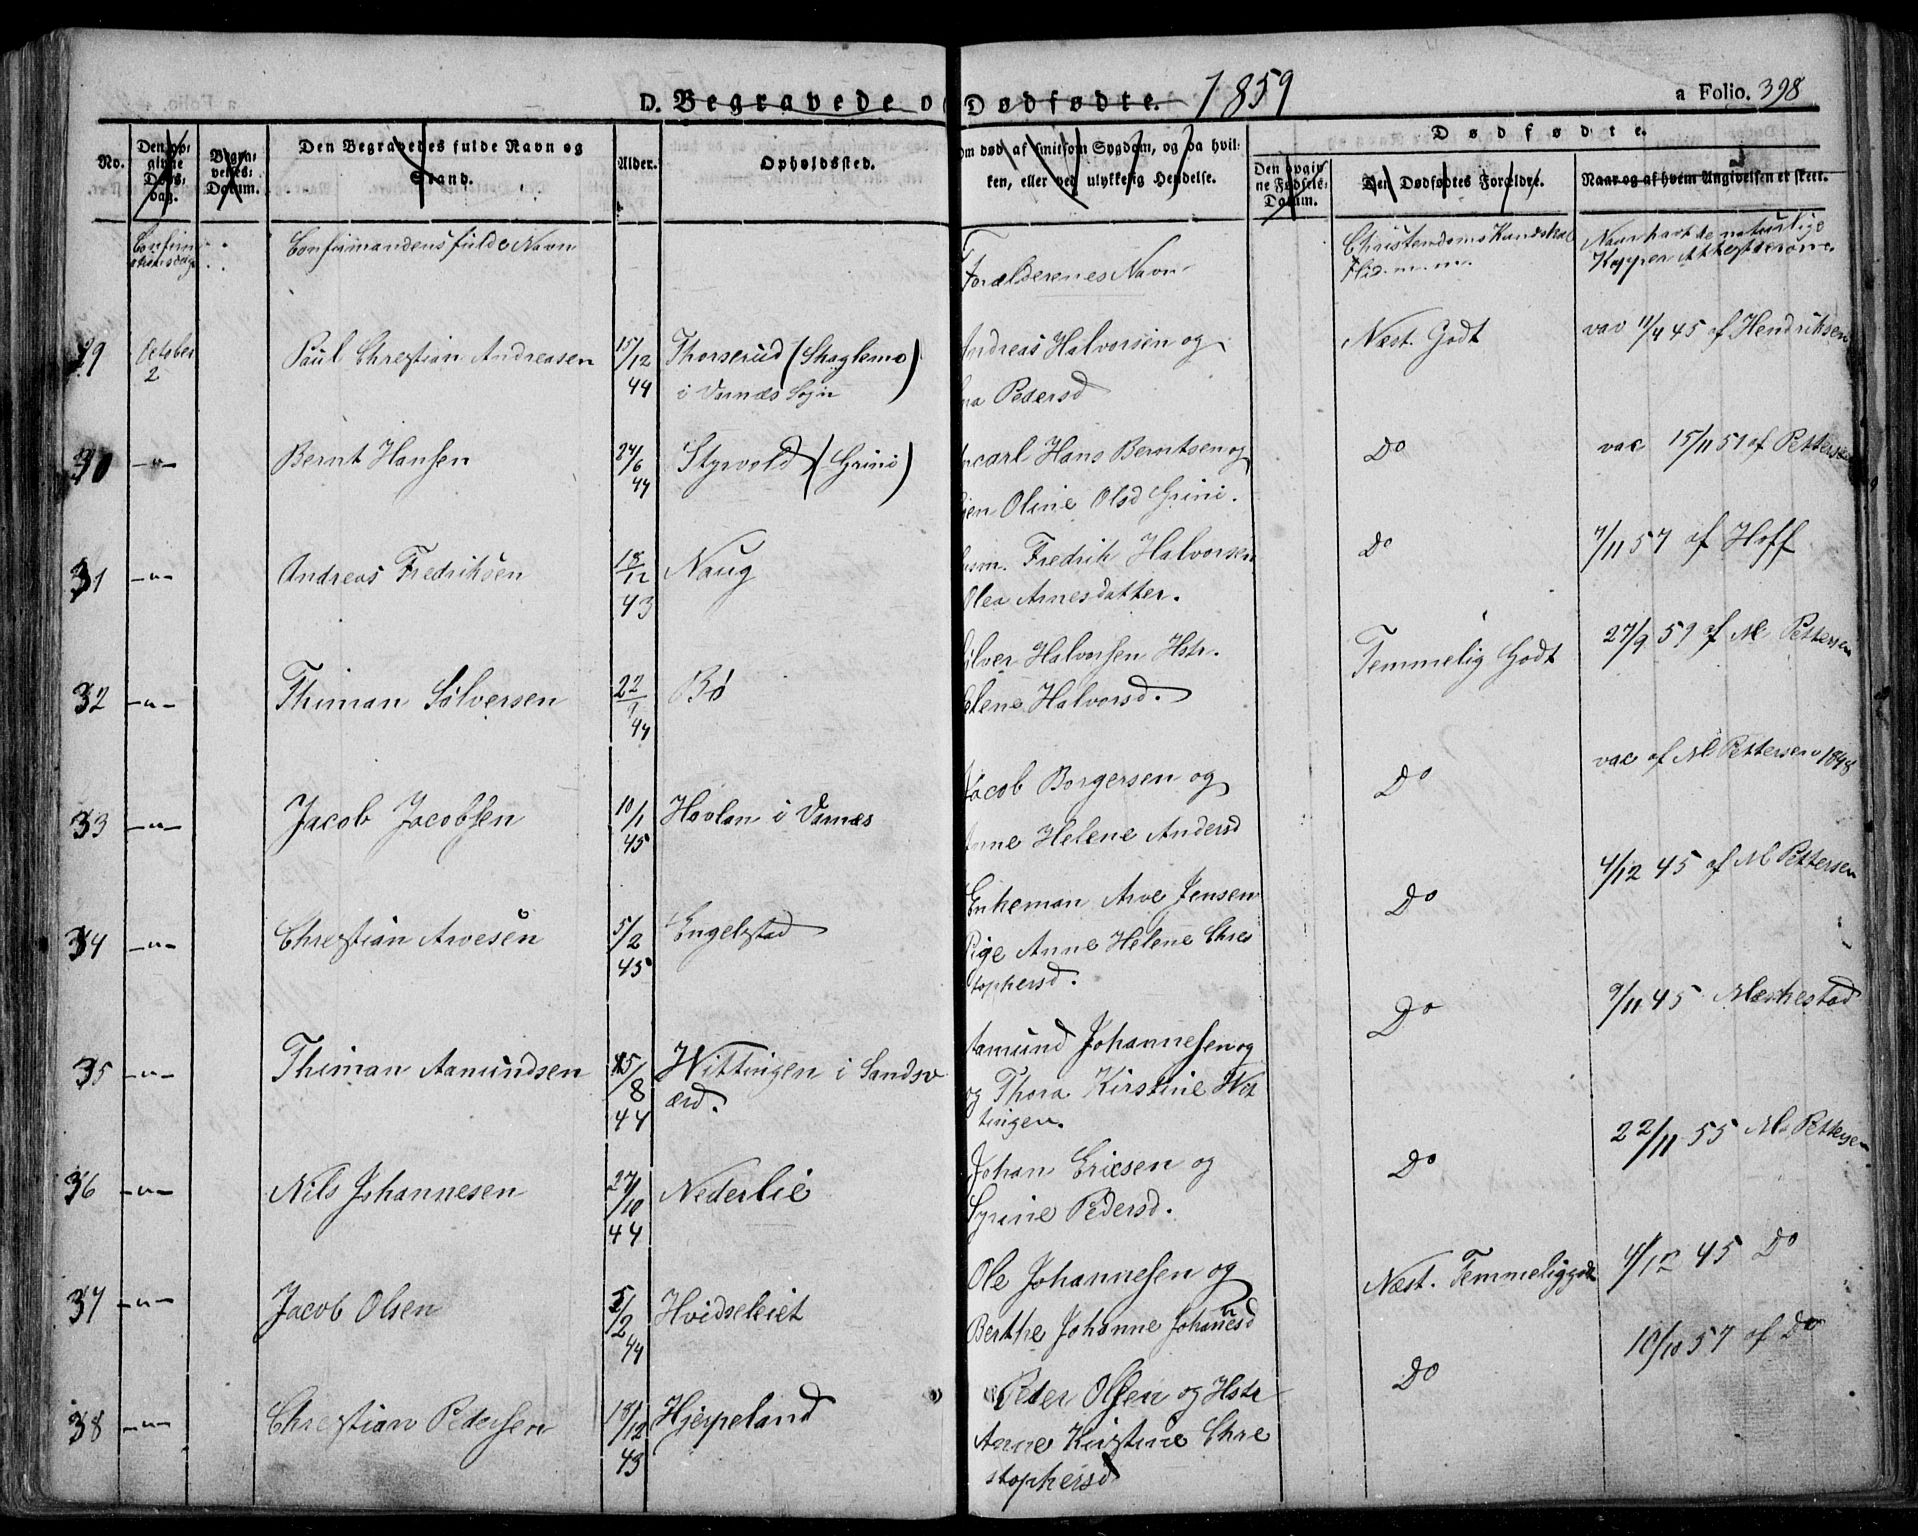 D. Begravede o Dødfødte. 1859
a Folio. 398
No.
Den op-
givne
Døds-
dag.
Begra-
velses-
Datum.
Den Begravedes fulde Navn og
Stand.
Alder.
Opholdssted.
Om død af smitsom Sygdom, og da hvil-
ken, eller ved ulykkelig Hendelse.
Dødfødte.
Den opgiv-
ne Fødsels-
Datum.
Den Dødfødtes Forældre.
Naar og af hvem Angivelsen er skeet.
Confirmandens fulde Navn
Forælderenes Navn
Christendoms Kundskab
Flid m. m.
Naar havt de naturlige
Kopper Attesterne
29 October 2 Paul Christian Andreasen 15/12 44 Thorserud (Skaglemo)
i Varnæs Sogn
Andreas Halvorsen og
na Pedersd
Næst. Godt
vac 11/4 45 af Hendriksen
30 -"- Bernt Hansen 24/6 44 Styrvold (Grini)
ncarl Hans Berntsen og
gen Oline Olsd Grini.
Do
vac 15/11 51 af Petterse
31 -"- Andreas Fredriksen 18/12 43 Naug
usm. Fredrik Halvorsen
Olea Arnesdatter.
Do
7/11 57 af Hoff
32 -"- Thiman Sølversen 22/9 44 Bø
Sølver Halvorsen Hstr.
elene Halvorsd.
Temmelig Godt
27/9 59 af M Pettersen
33 -"- Jacob Jacobsen 10/1 45 Hovlan i Varnæs
Jacob Borgersen og
Anne Helene Andersd
Do
vac af M Pettersen 1848
34 -"- Christian Arvesen 5/2 45 Engelstad
Enkeman Arve Jensen
Pige Anne Helene Chris
tophersd.
Do
4/12 45 af M Pettersen
35 -"- Thiman Aamundsen 15/8 44 Wittingen i Sandsv
ærd.
Aamund Johannesen og
og Thora Kirstine Wit
tingen.
Do
9/11 45 Mærkestad
36 -"- Nils Johannesen 27/10 44 Nederlie
Johan Ericsen og
Syrine Pedersd.
Do
22/11 55 M. Pettersen
37 -"- Jacob Olsen 5/2 44 Hvidseleiet
Ole Johannesen og
Berthe Johanne Johannesd
Næst. Temmelig godt
4/12 45 Do
38 -"- Christian Pedersen 18/12 43 Hjerpeland
Peder Olsen og Hstr
Anne Kirstine Chre
stophersd
Do
10/10 57 af Do